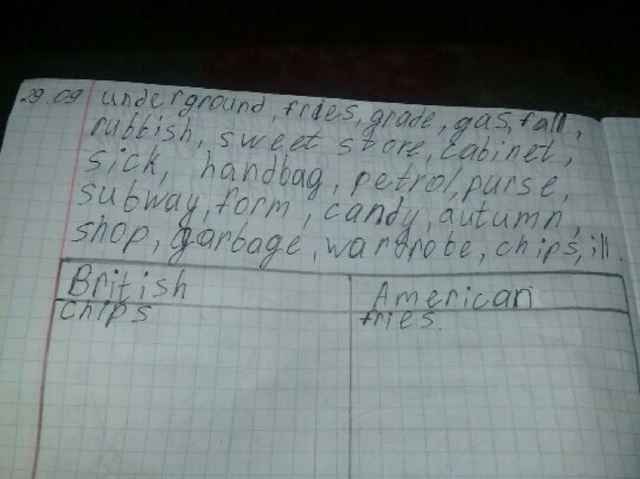 29.09 underground, fries, grade, gas, fall,
rubbish, sweet store, cabinet,
sick, handbag, petrol, purse,
subway, form, candy, autumn,
shop, garbage, wardrobe, chips, ill.
British American
chips fries.